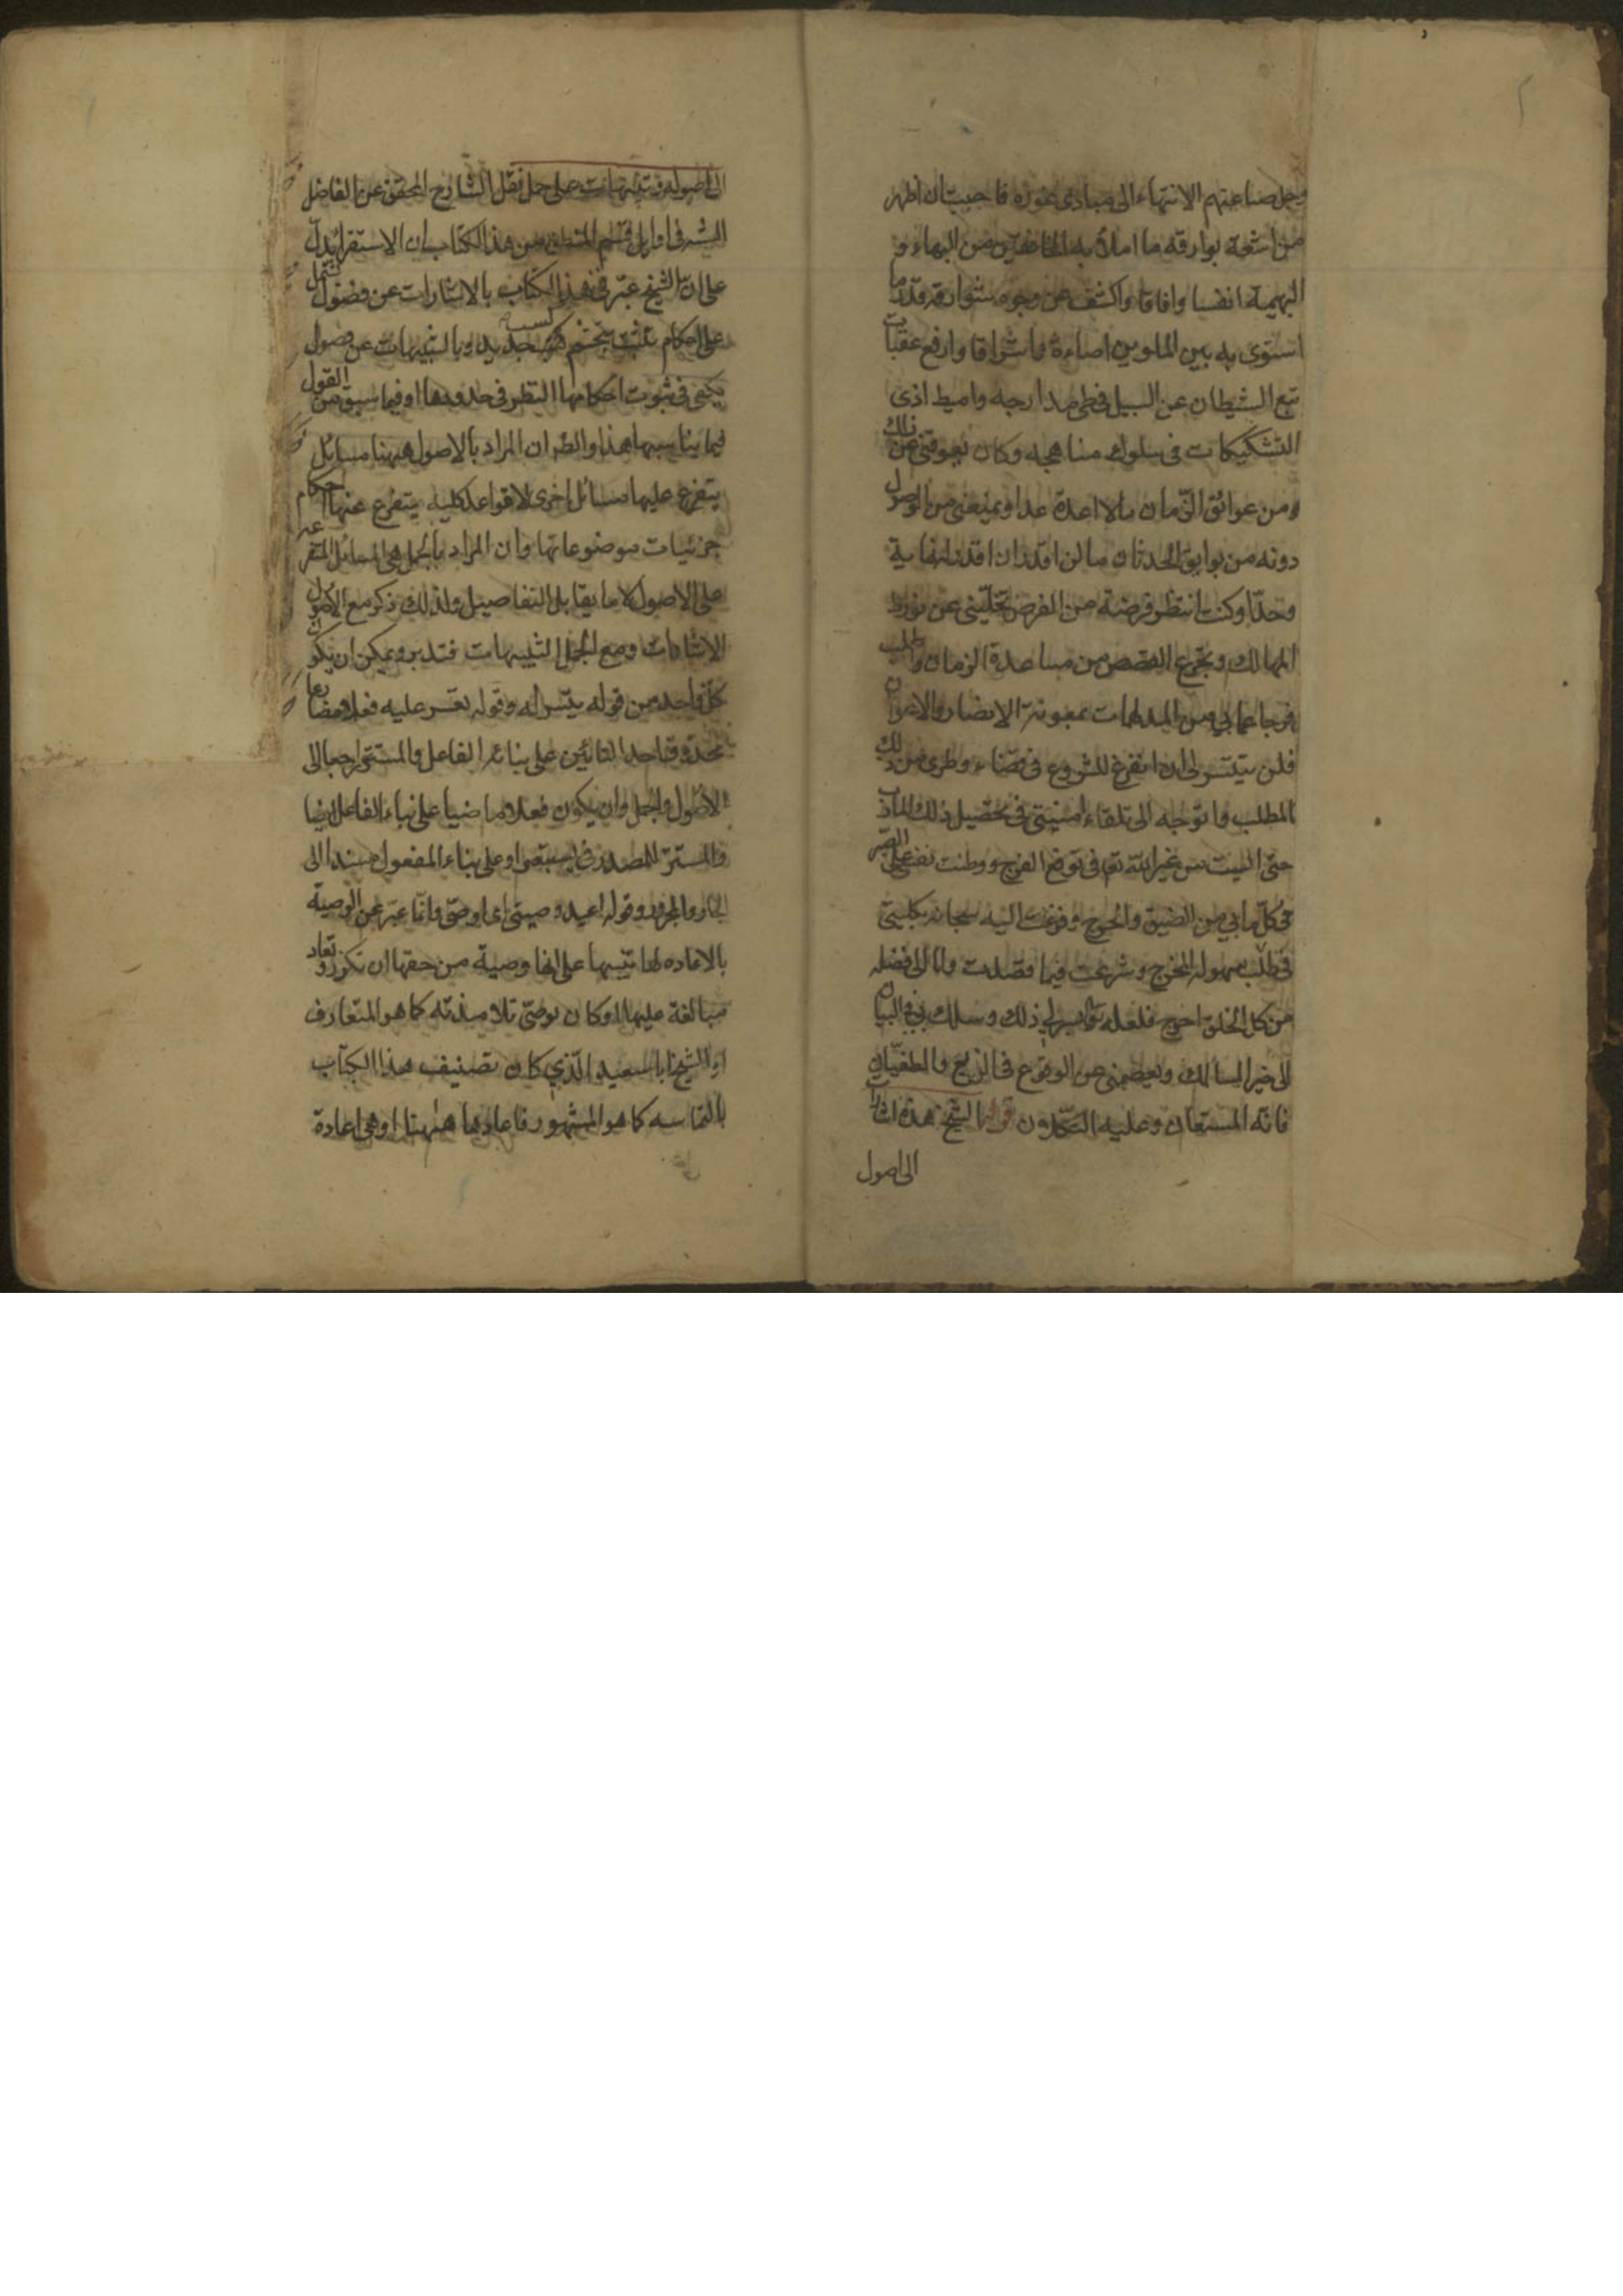 وجل صناعتهم الانتهاء الى مبادى غوره فاحببت ان اظهر
من اشعة بوارقه ما املأ به الخافقين من البهاء و
البهجة انفسا وافاقا واكشف عن وجوه شوارقه قدر ما
استوى به بين الملوين اضاءة واشراقا وارفع عقبات
تبع الشيطان عن السبيل فى طى مدارجه واميط اذى
التشكيكات فى سلوك مناهجه وكان يعوقنى عن ذلك
ومن عوائق الزمان مالا اعدة عدا ويمنعنى من الوصول
دونه من بوايق الحدثان ما لن اقدر ان اقدر لنهاية
وحدا وكنت انتظر فرصة من الفرص تخلينى عن تورط
المهالك وتجرع الغصص من مساعدة الزمان واطلب
فرجا عما بى من الملمات بمعونة الانصار والاعوان
فلن يتيسر لى ان اتفرغ للشروع فى قضاء وطرى من ذلك
المطلب واتوجه الى تلقاء امنيتى فى تحصيل ذلك المأرب
حتى ايست من غير الله تع فى توقع الفرج ووطنت نفسى على الصبر
فى كل ما بى من الضيق والحرج وفزعت اليه سبحانه بكليتى
فى طلب سهولة المخرج وشرعت فيما قصدت وانا الى فضله
من كل الخلق احوج فلعله تع ييسر لى ذلك وسلك بى فى البيان
الى خير المسالك ويعصمنى عن الوقوع فى الزيغ والطغيان
فانه المستعان وعليه التكلان قوله الشيخ هذه اشارات
الى اصول
الى اصول وتنبيهات على جمل نقل الشارح المحقق عن الفاضل
الش فى اوايل قسم المنطق من هذا الكتاب ان الاستقراء يدل
على ان الشيخ عبر فى هذا الكتاب بالاشارات عن فصول تشتمل
على احكام تثبت بتجشم كسب جديد وبالتنبيهات عن فصول
يكفى فى ثبوت احكامها النظر فى حدودها او فيما سبق من القول
فيما يناسبها هذا والظ ان المراد بالاصول ههنا مسائل
يتفرع عليها مسائل اخرى لا قواعد كلية يتفرع عنها احكام
جزئيات موضوعاتها وان المراد بالجمل هى المسائل المتفرعه
على الاصول لا ما يقابل التفاصيل ولذلك ذكر مع الاصول
الاشارات ومع الجمل التنبيهات فتدبر ويمكن ان يكون
كل واحد من قوله يتيسر له وقوله تعسر عليه فعلا مضارعا
بحذف احد التائين على بنائه الفاعل والمستتر راجعا الى
الاصول والجمل وان يكون فعلا ماضيا على بناء الفاعل ايضا
والمستتر للمصدر او على بناء المفعول مسندا الى
الجار والمجرور وقوله اعيد وصيتى اى اوصى وانما عبر عن الوصية
بالاعاده لها تنبيها على انها وصية من حقها ان تكرر وتعاد
مبالغة عليها او كان يوصى تلامذته كما هو المتعارف
او الشيخ ابا سعيد الذى كان تصنيف هذا الكتاب
بالتماسه كما هو المشهور فاعادها ههنا او هى اعادة